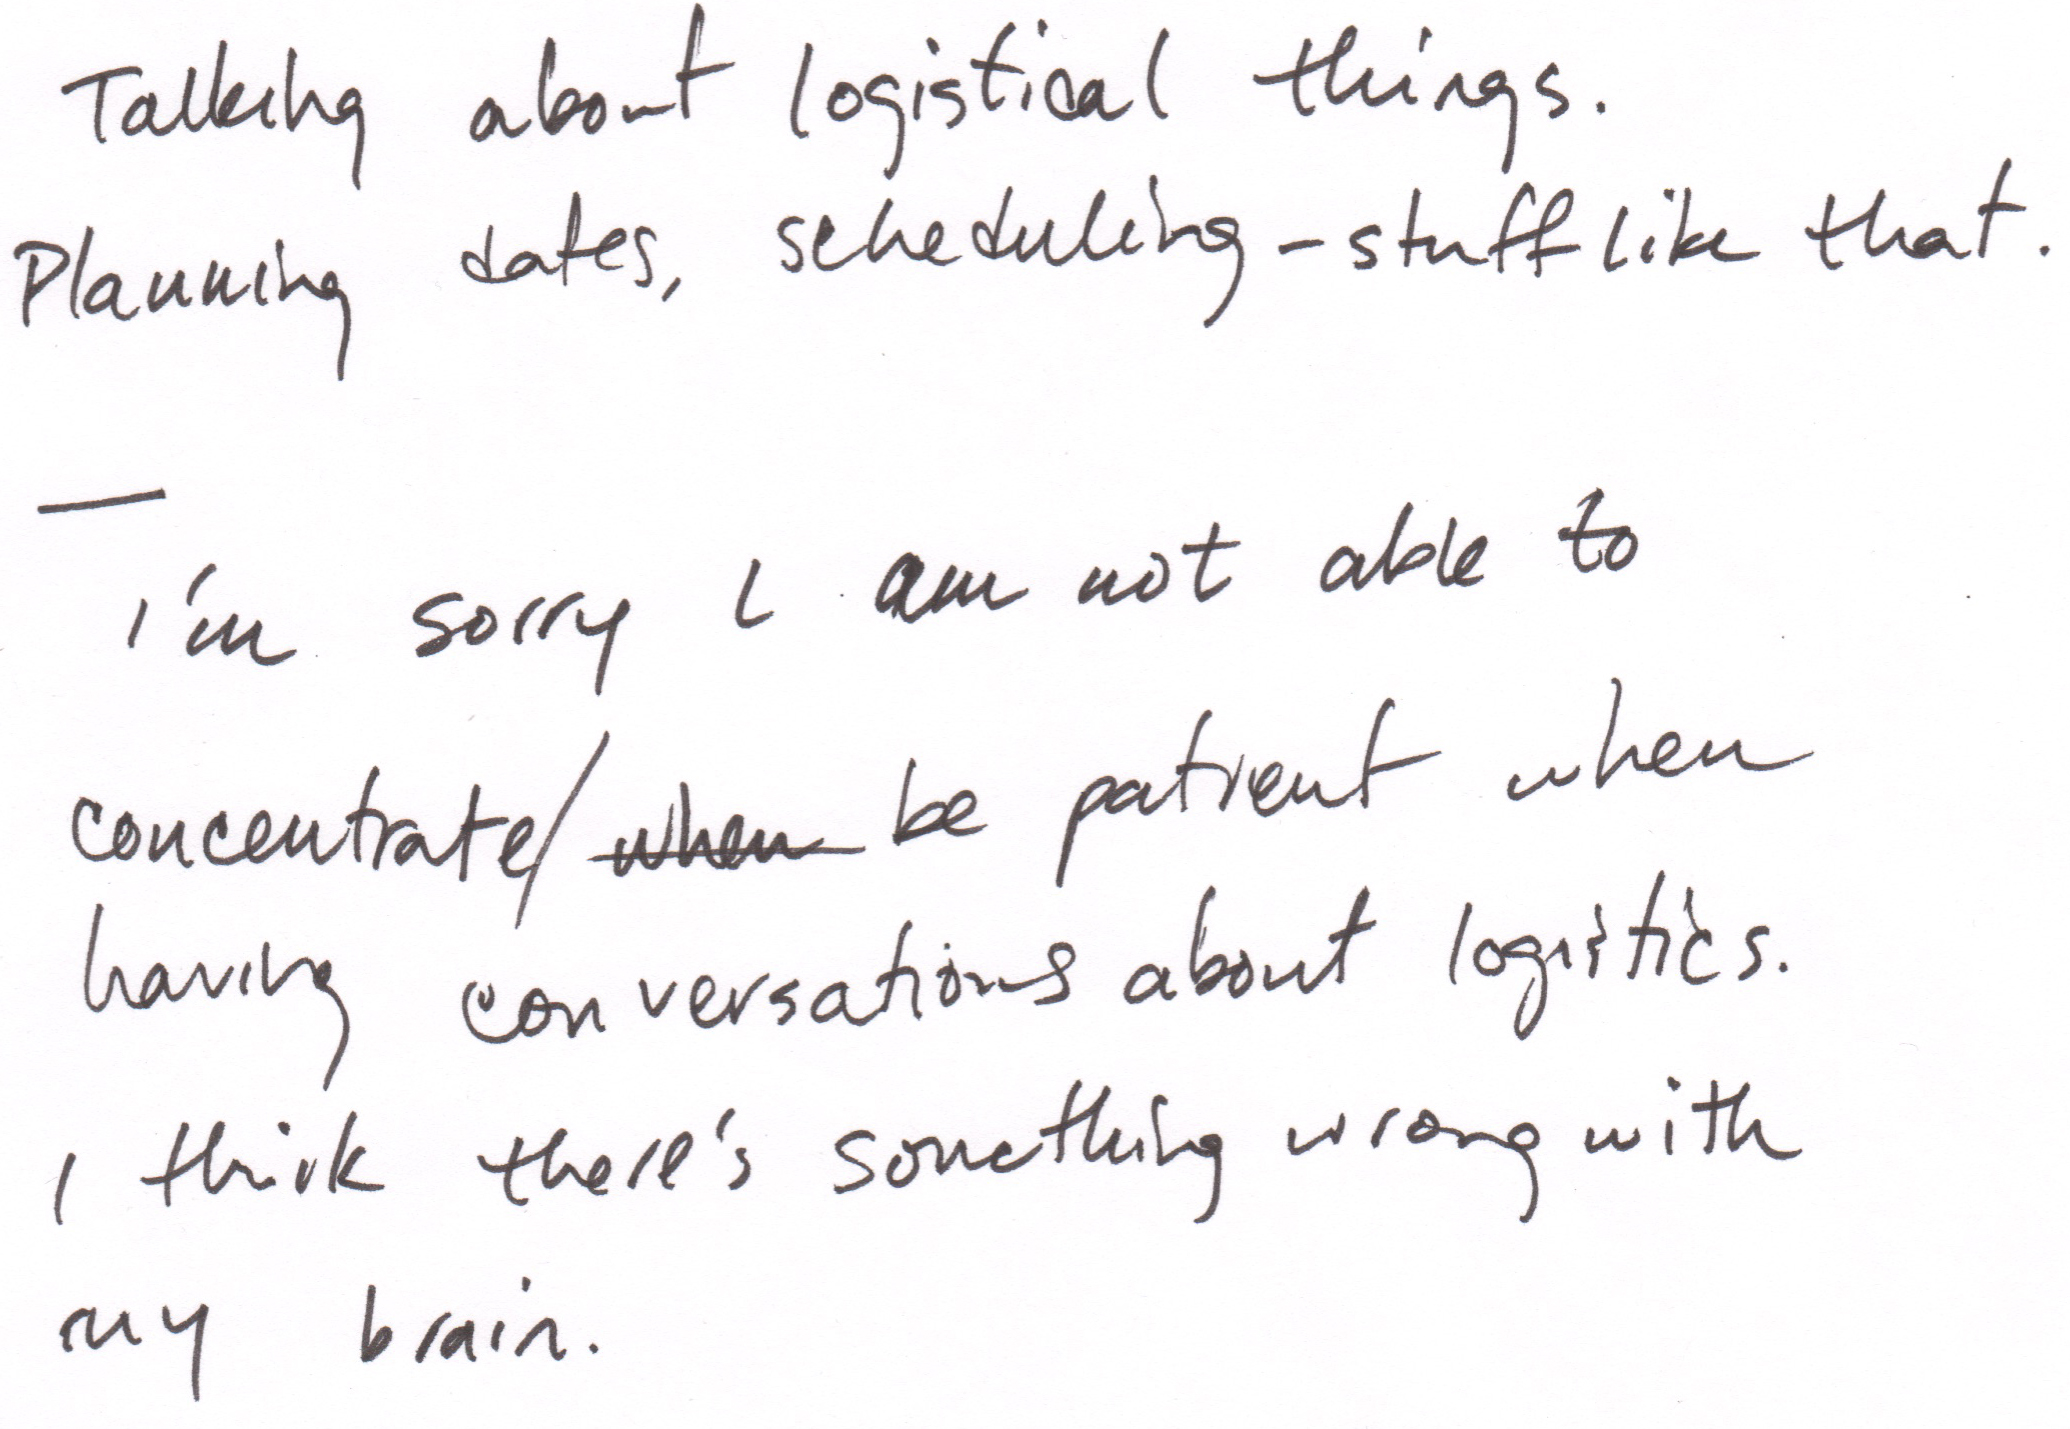 Talking about logistical things.
Planning dates, scheduling - stuff like that.
—
I'm sorry I am not able to
concentrate/ when be patient when
having conversations about logistics.
I think there's something wrong with
my brain.